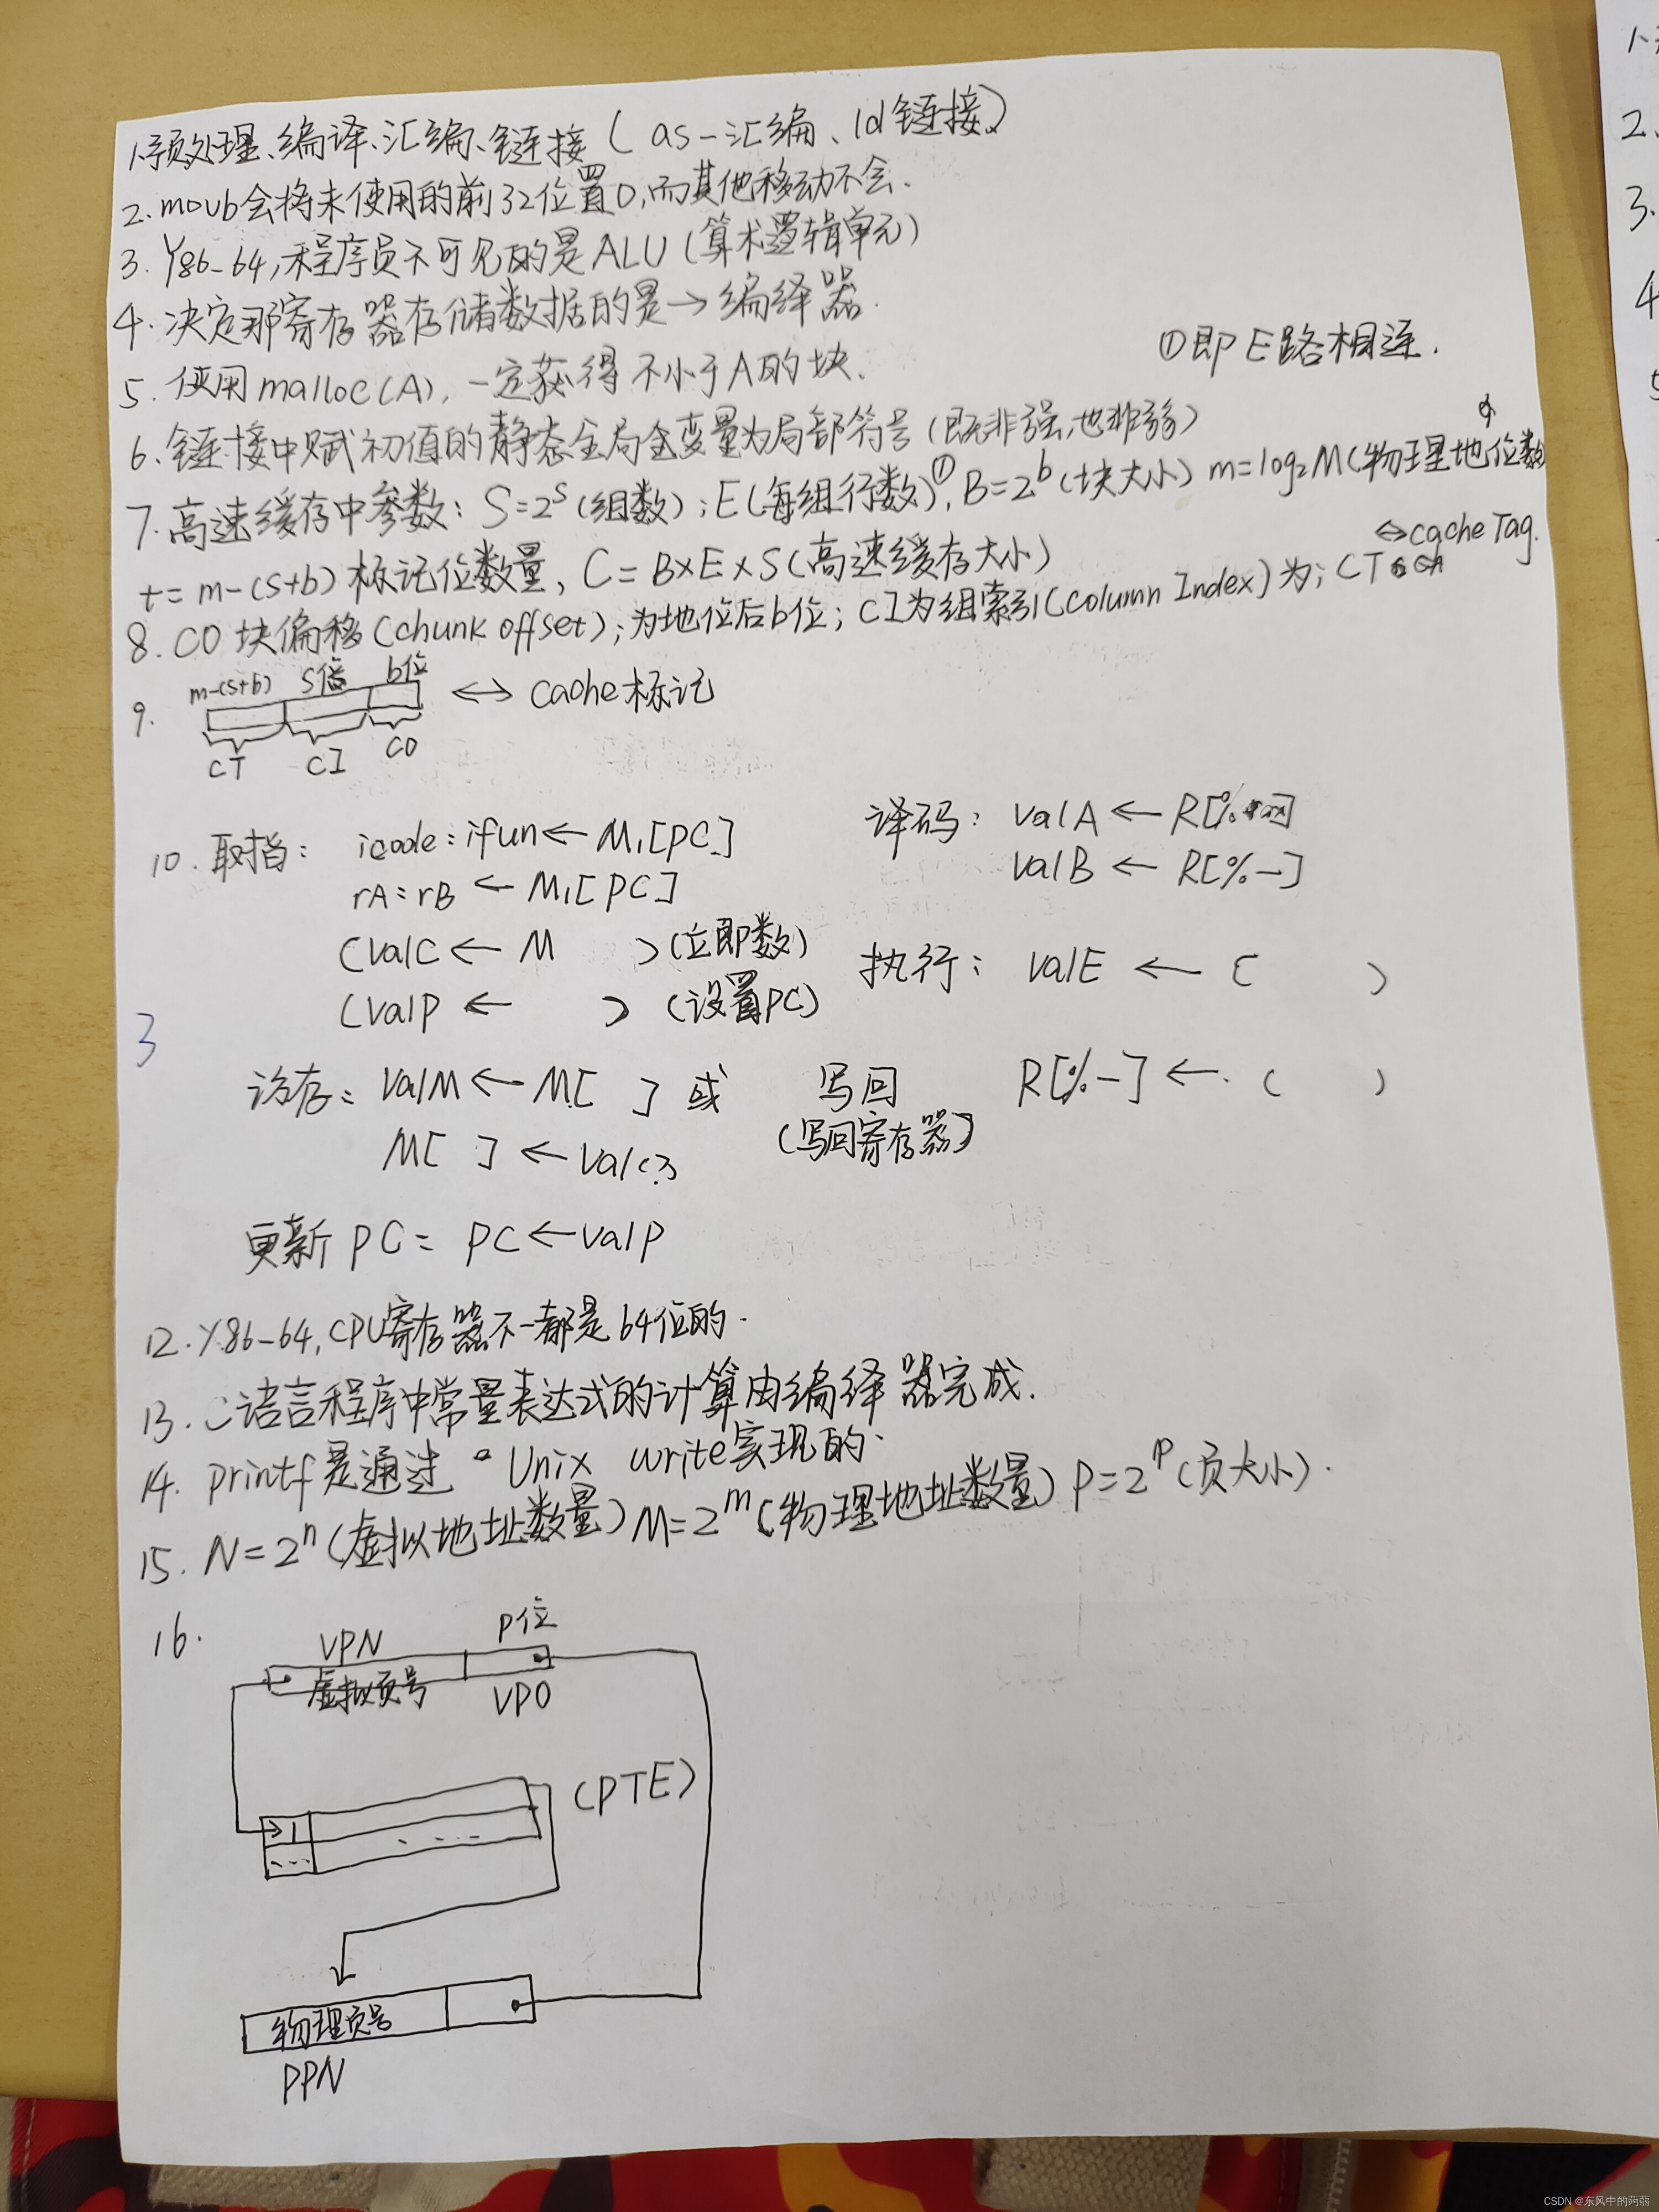 1.预处理、编译、汇编、链接 ( as-汇编、ld链接)
2. movb会将未使用的前32位置0,而其他移动不会.
3. Y86-64,程序员不可见的是ALU (算术逻辑单元)
4. 决定那寄存器存储数据的是→编译器.
①即E路相连.
5. 使用malloc(A),一定获得不小于A的块.
6. 链接中赋初值的静态全局变量为局部符号 (既非强,也非弱)
7. 高速缓存中参数: S=2^s (组数) ; E(每组行数)^①, B=2^b (块大小) m=log₂M(物理地位数
t= m-(s+b) 标记位数量, C= B×E×S (高速缓存大小)
↔cache Tag.
8. CO 块偏移 (chunk offset) ; 为地位后b位; CI为组索引(Column Index) 为; CT
m-(s+b) S位 b位
9. ↔ cache标记
CT CI CO
10. 取指: icode:ifun← M₁[PC]
译码: valA ← R[%]
valB ← R[%-]
rA:rB ← M₁[PC]
(valC ← M ) (立即数)
执行: valE ← ( )
(valP ← ) (设置PC)
3
访存: valM ← M[ ] 或
写回 R[%-] ← ( )
(写回寄存器)
M[ ] ← val
更新 PC: PC ← valP
12. Y86-64, CPU寄存器不一都是64位的.
13. C语言程序中常量表达式的计算由编绎器完成.
14. printf是通过 Unix write实现的.
15. N=2^n(虚拟地址数量) M=2^m(物理地址数量) P=2^p(页大小).
16.
VPN P位
虚拟页号 VPO
(PTE)
1
物理页号
PPN
1
2.
3.
4
5
CSDN @东风中的蒟蒻